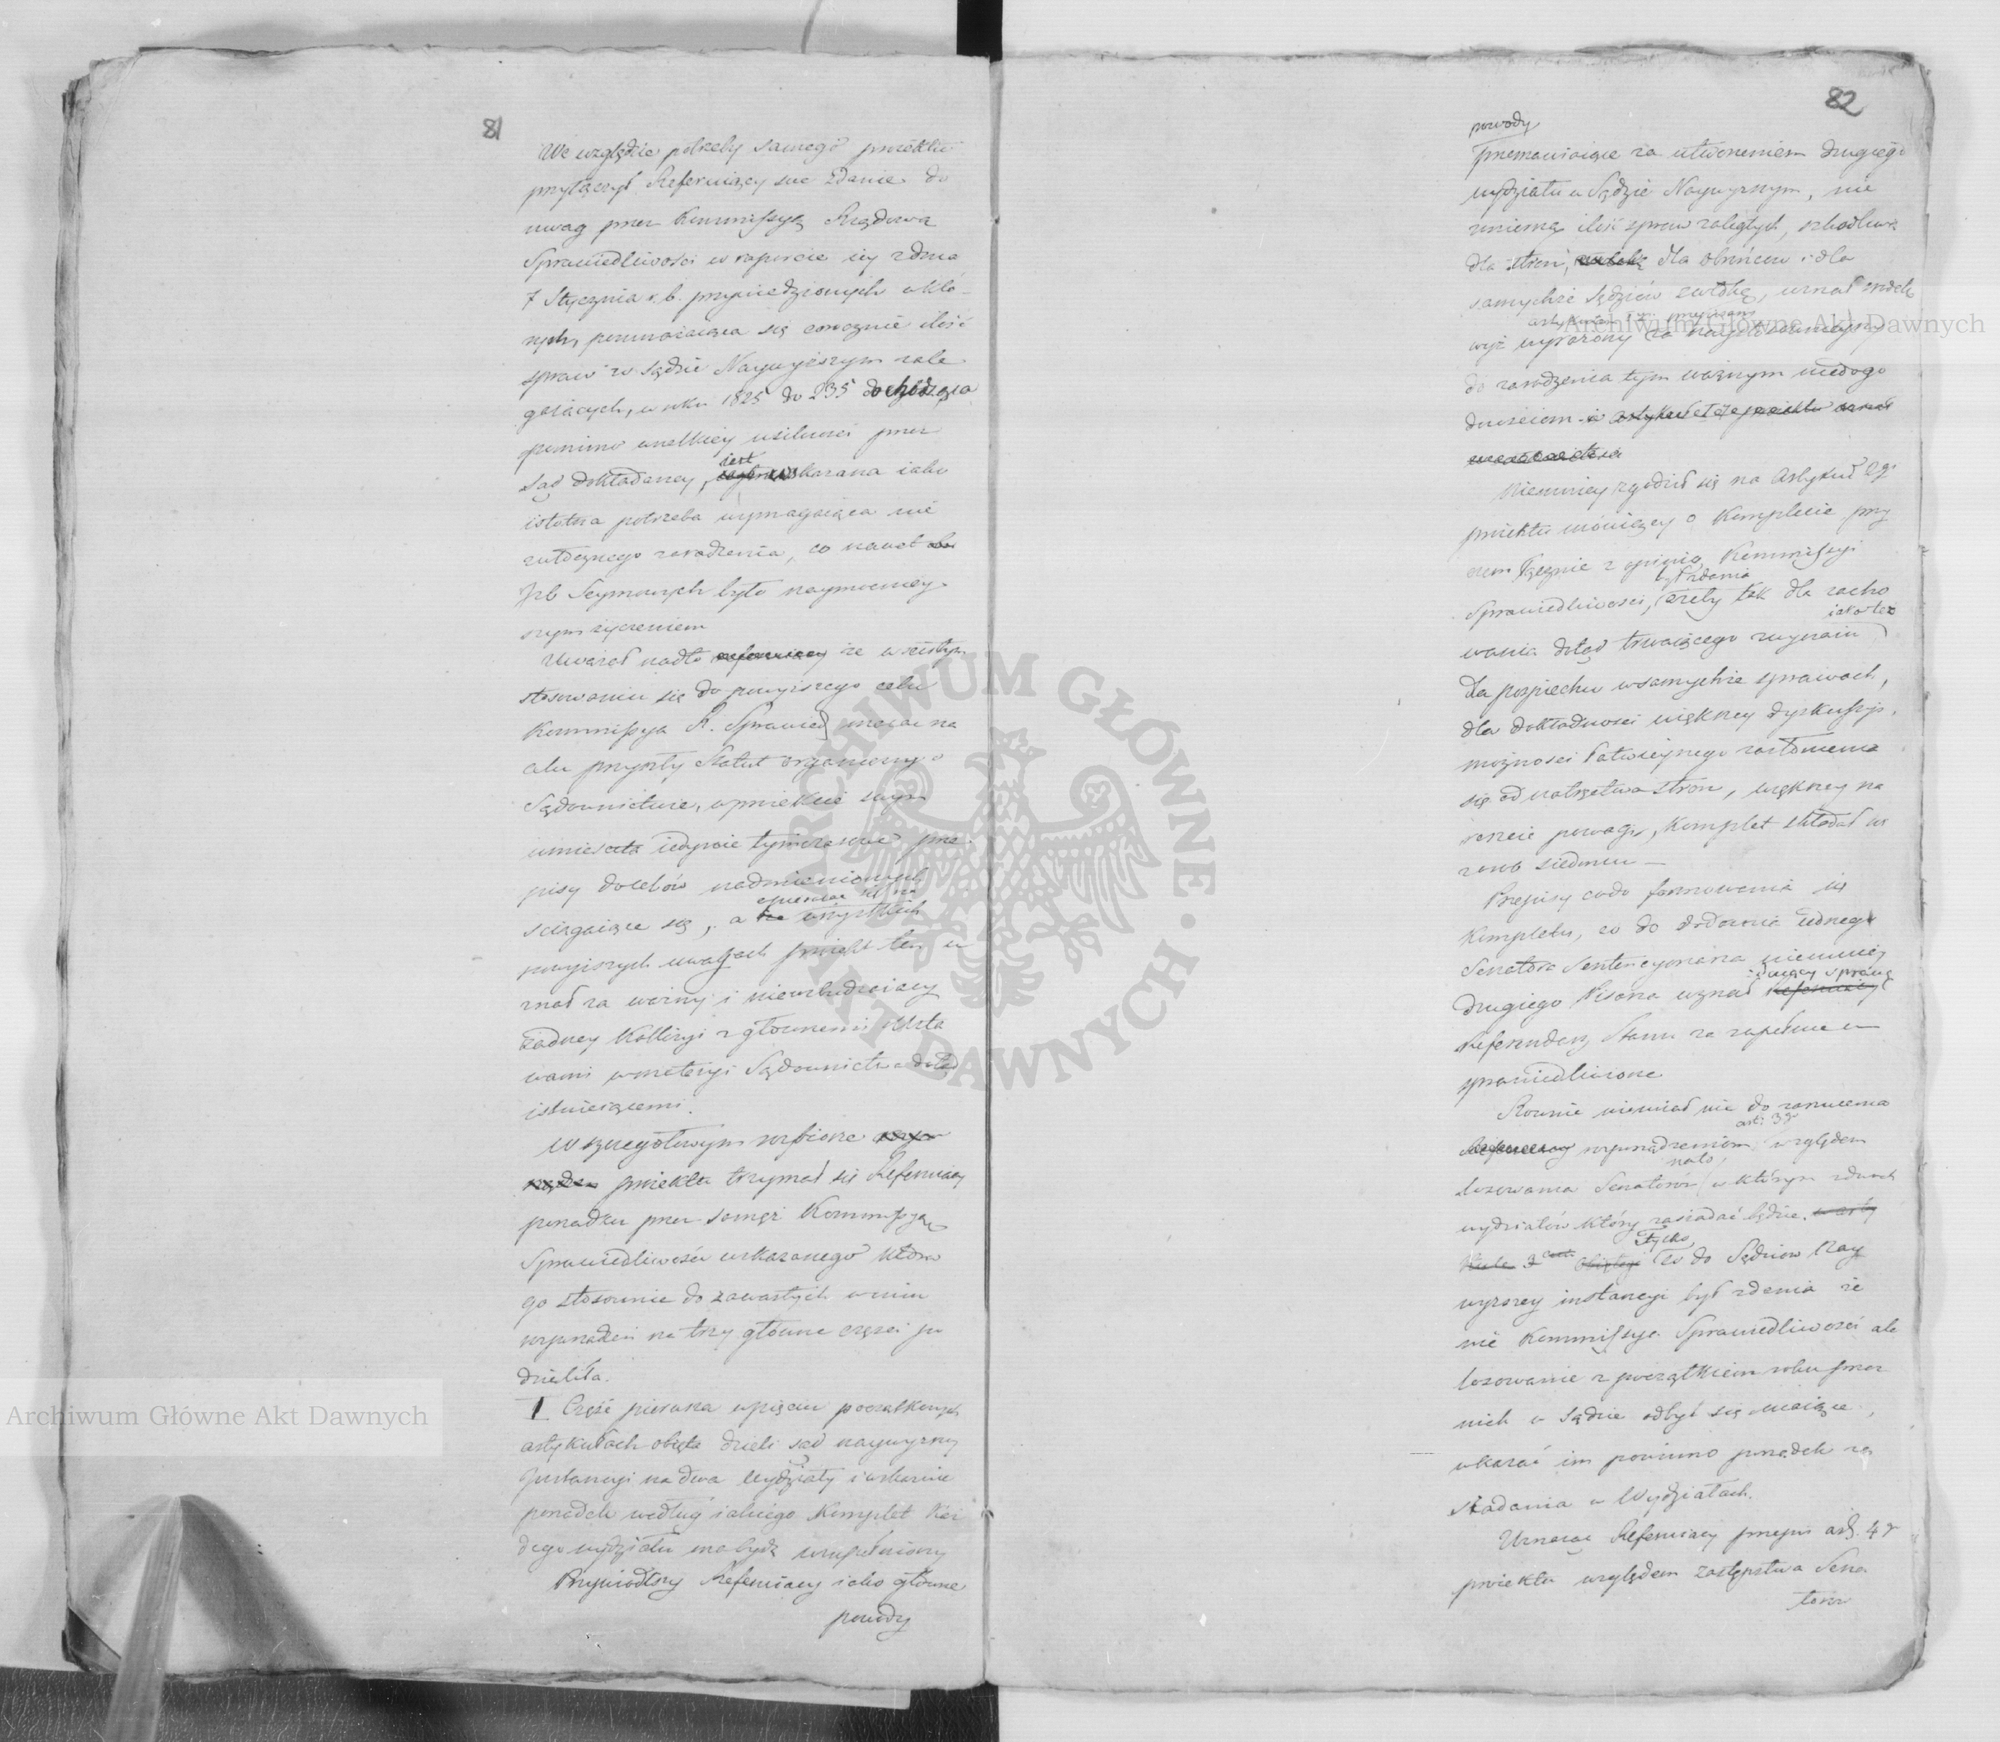 81
We względzie potrzeby samego proiektu
przyłączył Referuiący swe zdanie do
uwag przez Kommissyą Rządową
Sprawiedliwości w raporcie iey z dnia
7 Stycznia r. b. przywiedzionych w któ-
rych pomnażaiąca się corocznie ilość
spraw w Sądzie Naywyższym zale
gaiących, w roku 1825 do 235 dochodząca
pomimo wielkiey usilności przez
Sąd dokładaney, iest wskazana iako
istotna potrzeba wymagaiąca nie
zwłocznego zaradzenia, co nawet
Izb Seymowych było naymocniey-
szym życzeniem
Uważał nadto że w ścisłym
stosowaniu się do powyższego celu
Kommissya R. Sprawied. maiąc na
celu przyszły Statut organiczny
Sądownictwa, w proiekcie swym
umieściła iedynie tymczasowe prze-
pisy do celów nadmienionych
ściągaiące się, a opieraiąc się na wszystkich
powyższych uwagach proiekt ten u
znał za ważny i niewchodzący
żadney Kollizyi z głównemi Usta
wami w materyi Sądownictwa dotąd
istnieiącemi.
W szczegółowym rozbiorze
proiektu trzymał się Referuiący
porządku przez samęż Kommissyą
Sprawiedliwości wskazanego która
go stosownie do zawartych w nim
rozporządzeń na trzy główne części po
dzieliła.
I Część pierwsza w pięciu początkowych
artykułach obięta dzieli sąd naywyższey
Instancyi na dwa Wydziały i wskazuie
porządek według iakiego Komplet Każ
dego wydziału ma bydź uzupełniony
Przywiodłszy Referuiący iako główne
powody
82
powody
przemawiaiące za utworzeniem drugiego
wydziału w Sądzie Naywyższym, nie
zmierną ilość spraw zaległych, szkodliwą
dla stron, dla obrońców i dla
samychże Sędziów zwłokę, uznał środek
artykułem 1m przepisany
wyż wyrażony za naystosownieyszy
do zaradzenia tym ważnym niedogo
dnościom
Niemniey zgodził się na artykuł 2gi
proiektu mówiący o Komplecie przy
czem łącznie z opinią Kommissyi
Sprawiedliwości, był zdania żeby tak dla zacho
wania dotąd trwaiącego zwyczaiu iako też
dla pospiechu w samychże sprawach,
dla dokładności większey dyskussyi,
możności łatwieyszego zasłonienia
się od natręctwa stron, większey na
reszcie powagi, Komplet składał się
z osób siedmiu —
Przepisy co do formowania się
Kompletu, co do dodania iednego
Senatora Sentencyonarza niemniey
drugiego Pisarza uznał zdaiący sprawę
Referendarz Stanu za zupełnie u
sprawiedliwione
Równie niemiał nic do zarzucenia
rozporządzeniom art: 3go względem
losowania Senatorów na to w którym z dwóch
wydziałów który zasiadać będzie.
Tylko co do Sędziów Nay
wyższey instancyi był zdania że
nie Kommissya Sprawiedliwości ale
losowanie z początkiem roku przez
nich w Sądzie odbyć się maiące,
wskazać im powinno porządek za
siadania w Wydziałach.
Uznaiąc Referuiący przepis art. 4go
proiektu względem zastępstwa Sena
torów
Archiwum Główne Akt Dawnych
Archiwum Główne Akt Dawnych
ARCHIWUM GŁÓWNE · AKT DAWNYCH ·